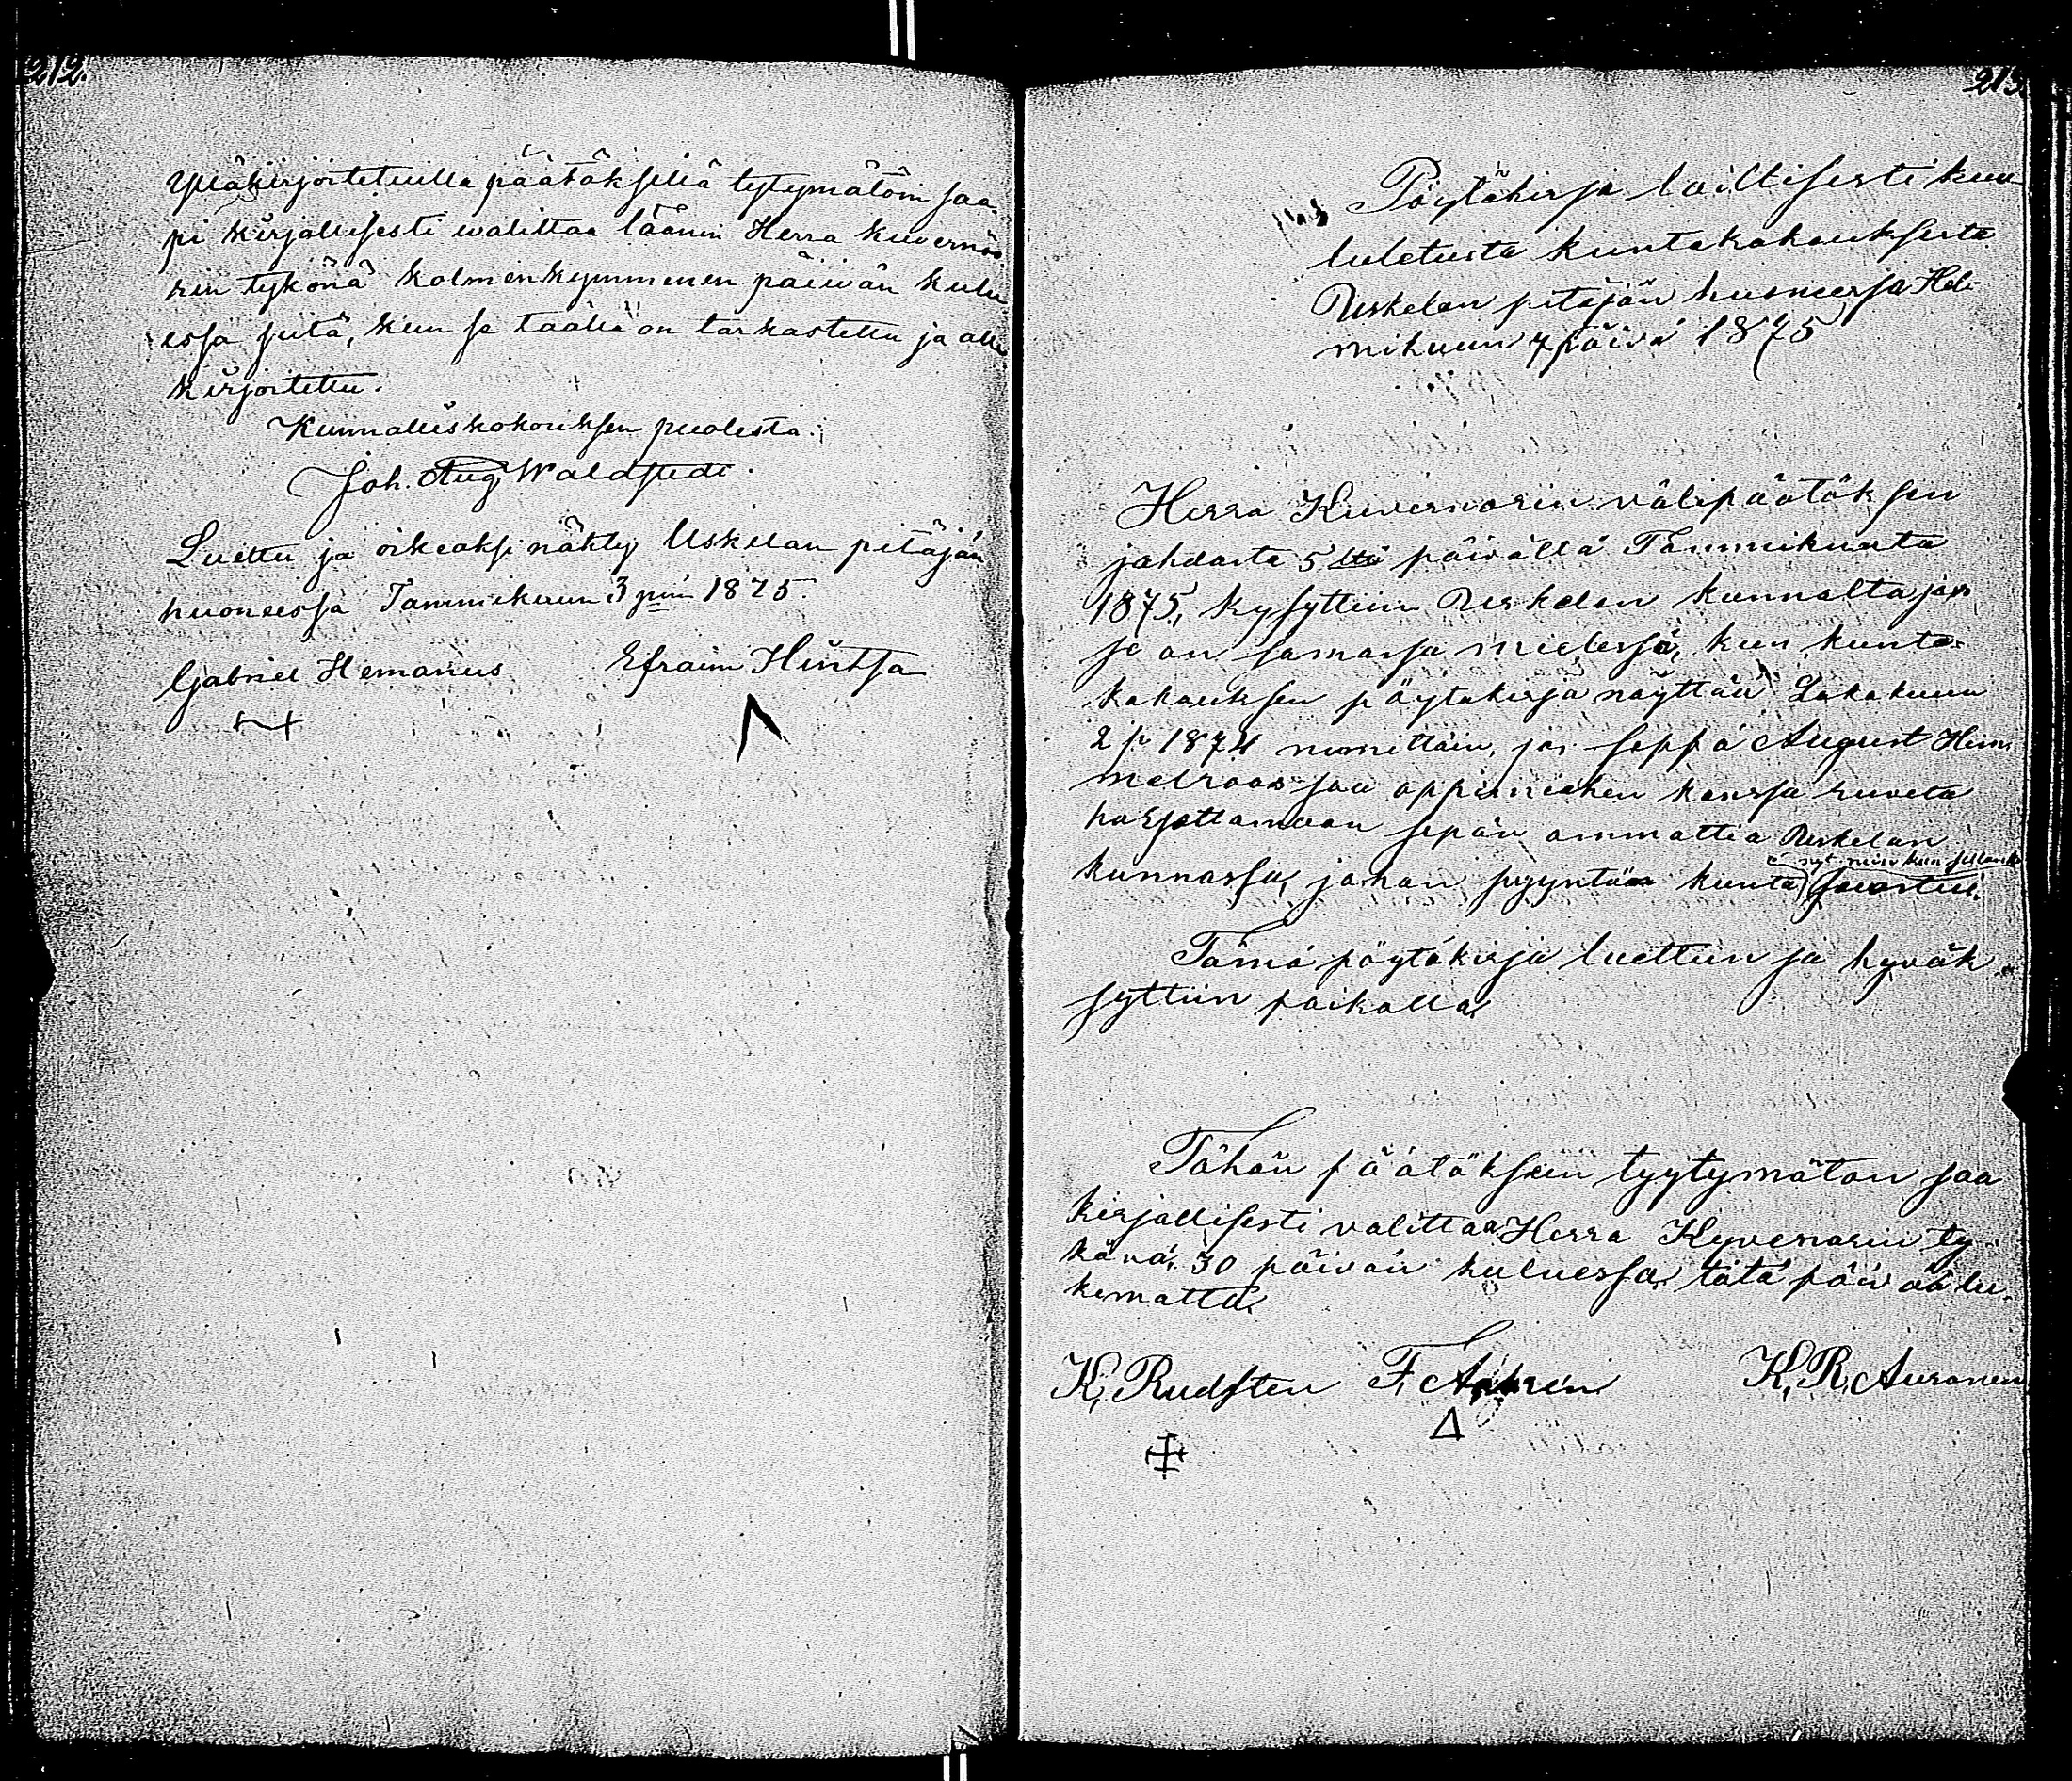 212.
Yläkirjoitetuilla päätöksillä tytymätöin saa-
pi kirjallisesti walittaa läänin Herra Kuvernöö-
rin tykönä kolmenkymmenen päiwän kulu
essa siitä, kun se täällä on tarkastettu ja alle
kirjoitettu.
Kunnalliskokouksen puolesta.
Joh. Aug Waldstedt.
Luettu ja oikeaksi nähty Uskelan pitäjän
huoneessa Tammikuun 3 pnä 1875.
Gabriel Hemanus Efraim Hintsa
213
Pöytäkirja laillisesti kuu-
lutetusta kuntakokouksesta
Uskelan pitäjän huoneessa Hel-
mikuun 7 päivä 1875
Herra Kuvernörin välipäätöksen
johdosta 5 ltä päivällä Tammikuuta
1875, kysyttiin Uskelan kunnalta jos
se on samassa mielessä, kun kunta-
kokouksen pöytäkirja näyttää Lokakuun
2 p 1874 nimittäin, jos seppä August Him-
melroos saa oppimiehen kanssa ruveta
harjottamaan sepän ammattia Uskelan
nyt niin kun sillonki
kunnassa, johon pyyntöön kunta suostui.
Tämä pöytäkirja luettiin ja hyväk-
syttiin paikalla.
Tähän päätökseen tyytymätön saa
kirjallisesti valittaa Herra Kyvernörin ty-
könä, 30 päivän kuluessa, tätä päivää lu-
kematta.
K, Rudsten F, K, R, Auranen